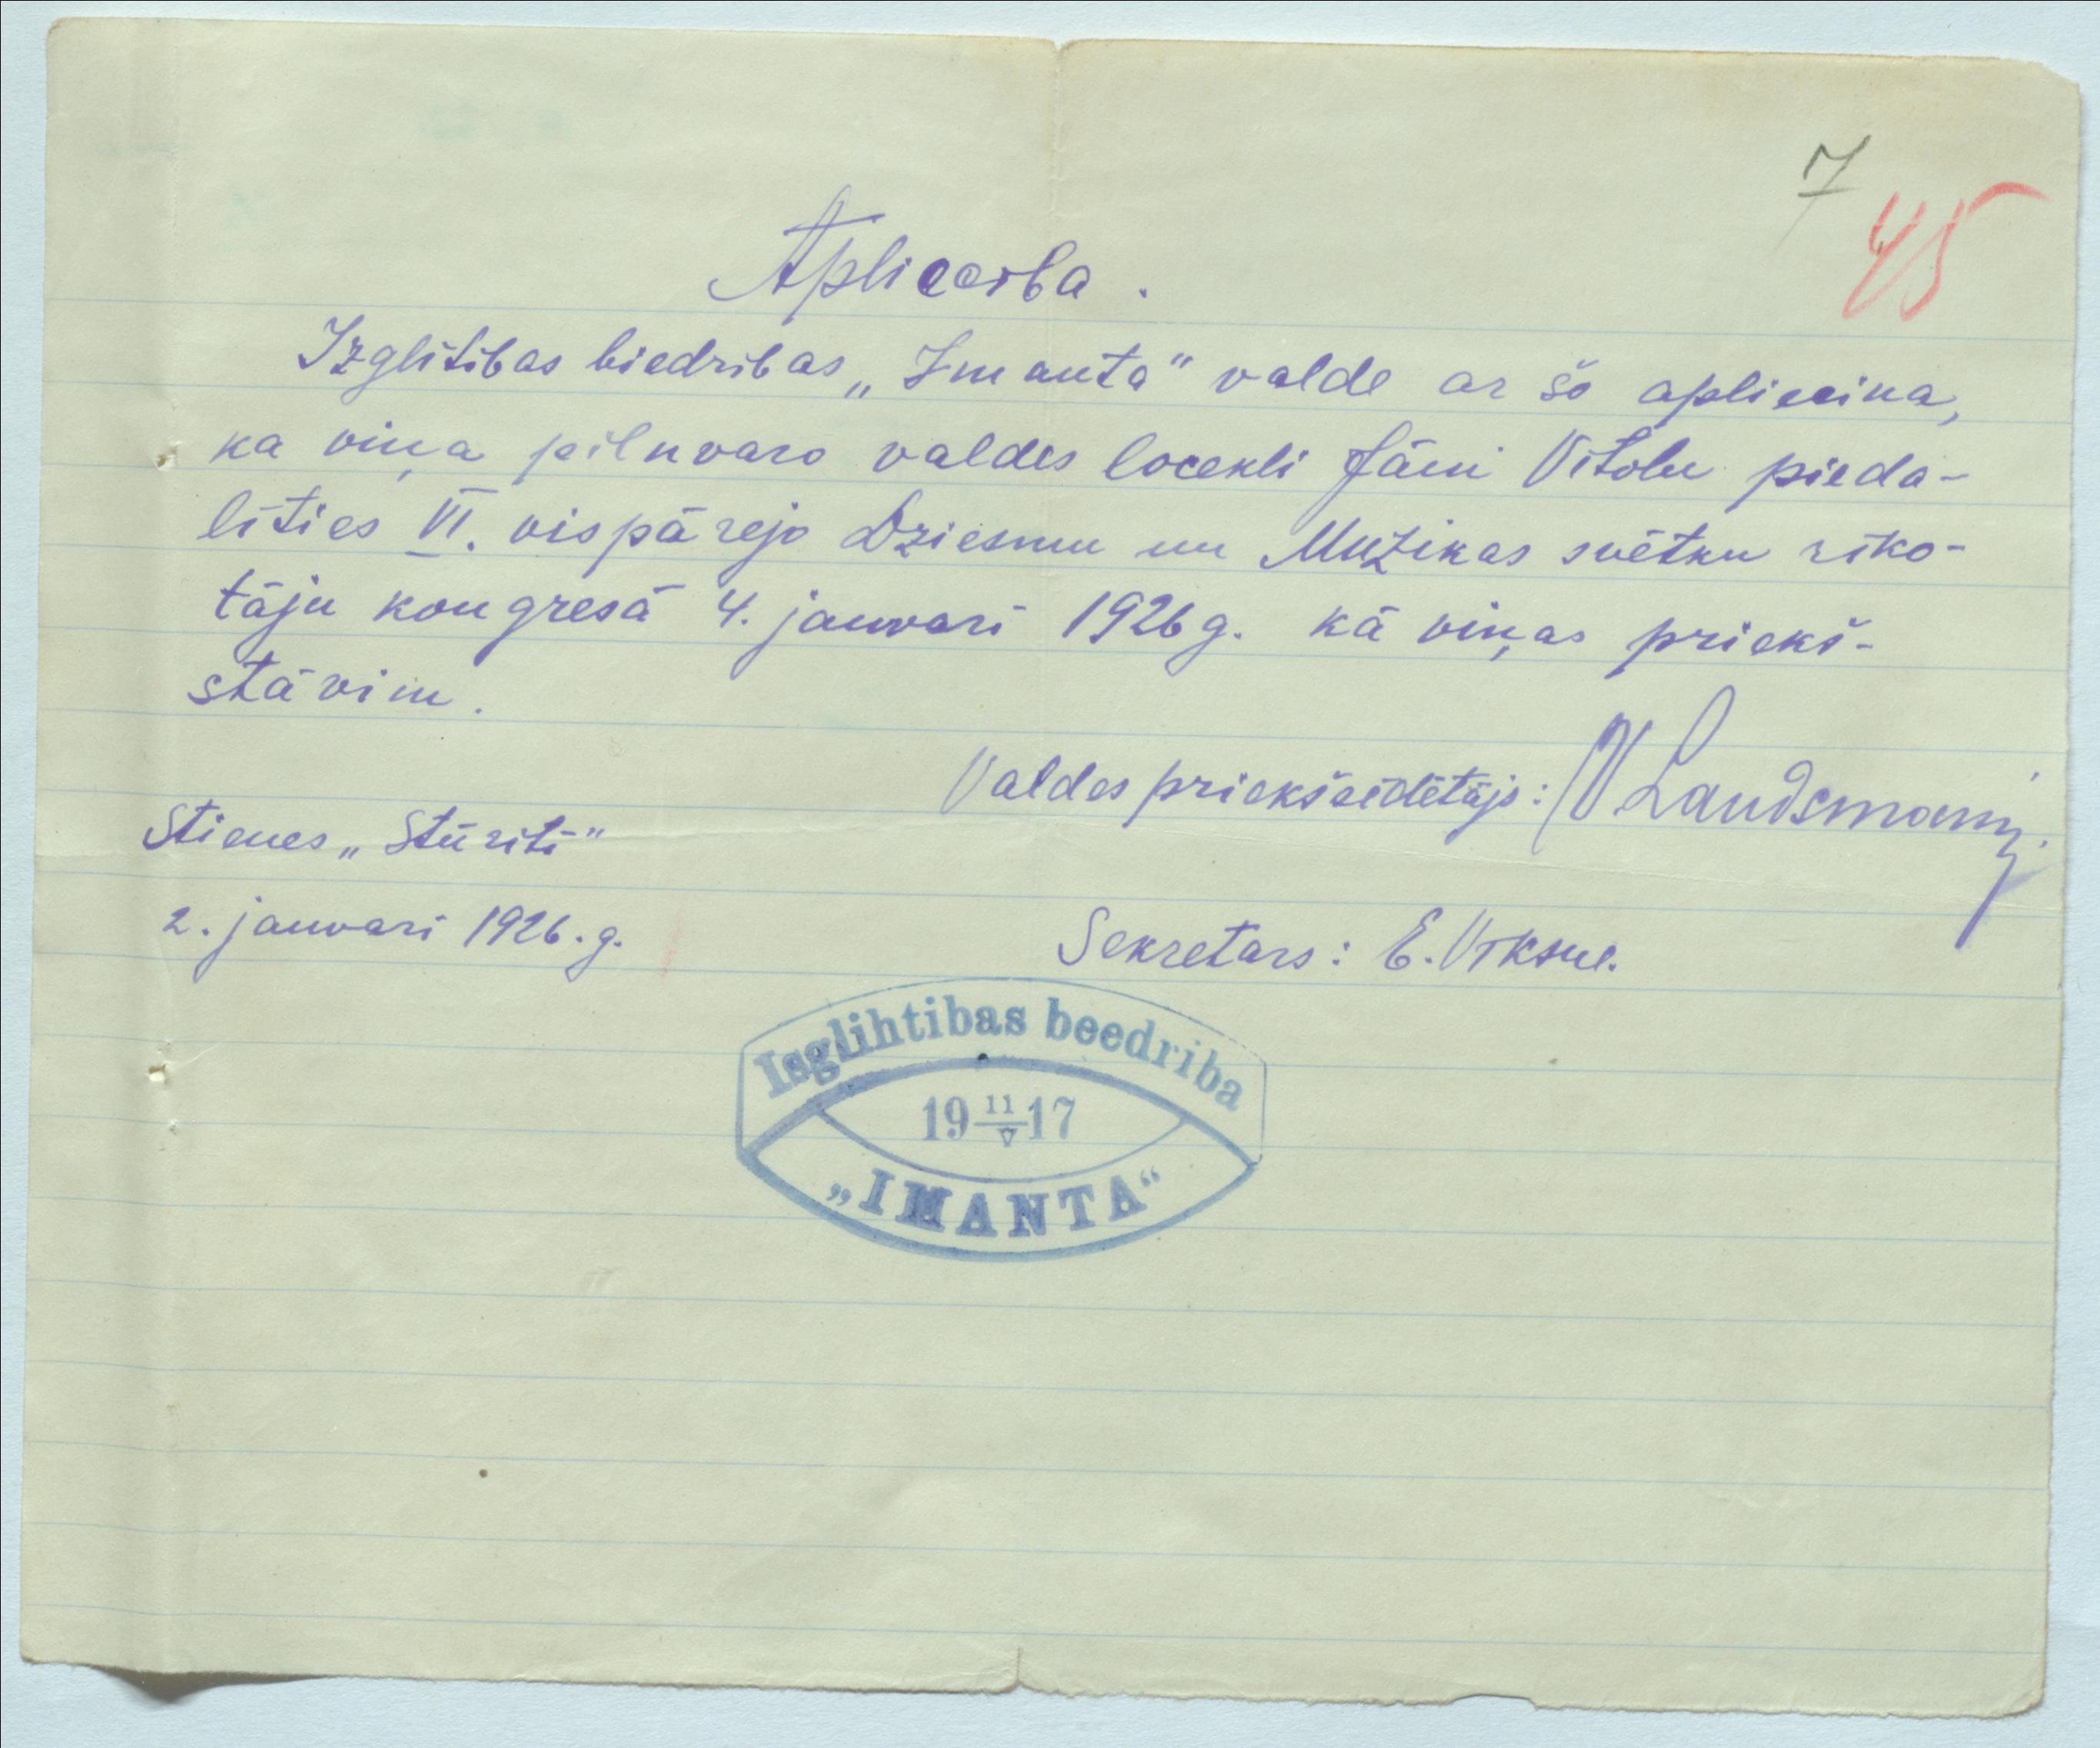 7
45
Apliecība.
Izglītības biedrības „Imanta" valde ar šo apliecina,
ka viņa pilnvaro valdes locekli Jāni Vītolu pieda-
līties VI. vispārējo Dziesmu un Mūzikas svētku rīko-
tāju kongresā 4. janvarī 1926 g. kā viņas priekš-
stāvim.
Valdes priekšsēdētājs: V Landsmanis.
Stienes „Stūrīti"
2. janvarī 1926. g.
Sekretars: E.
Isglihtibas beedriba
19 11/V 17
„IMANTA"